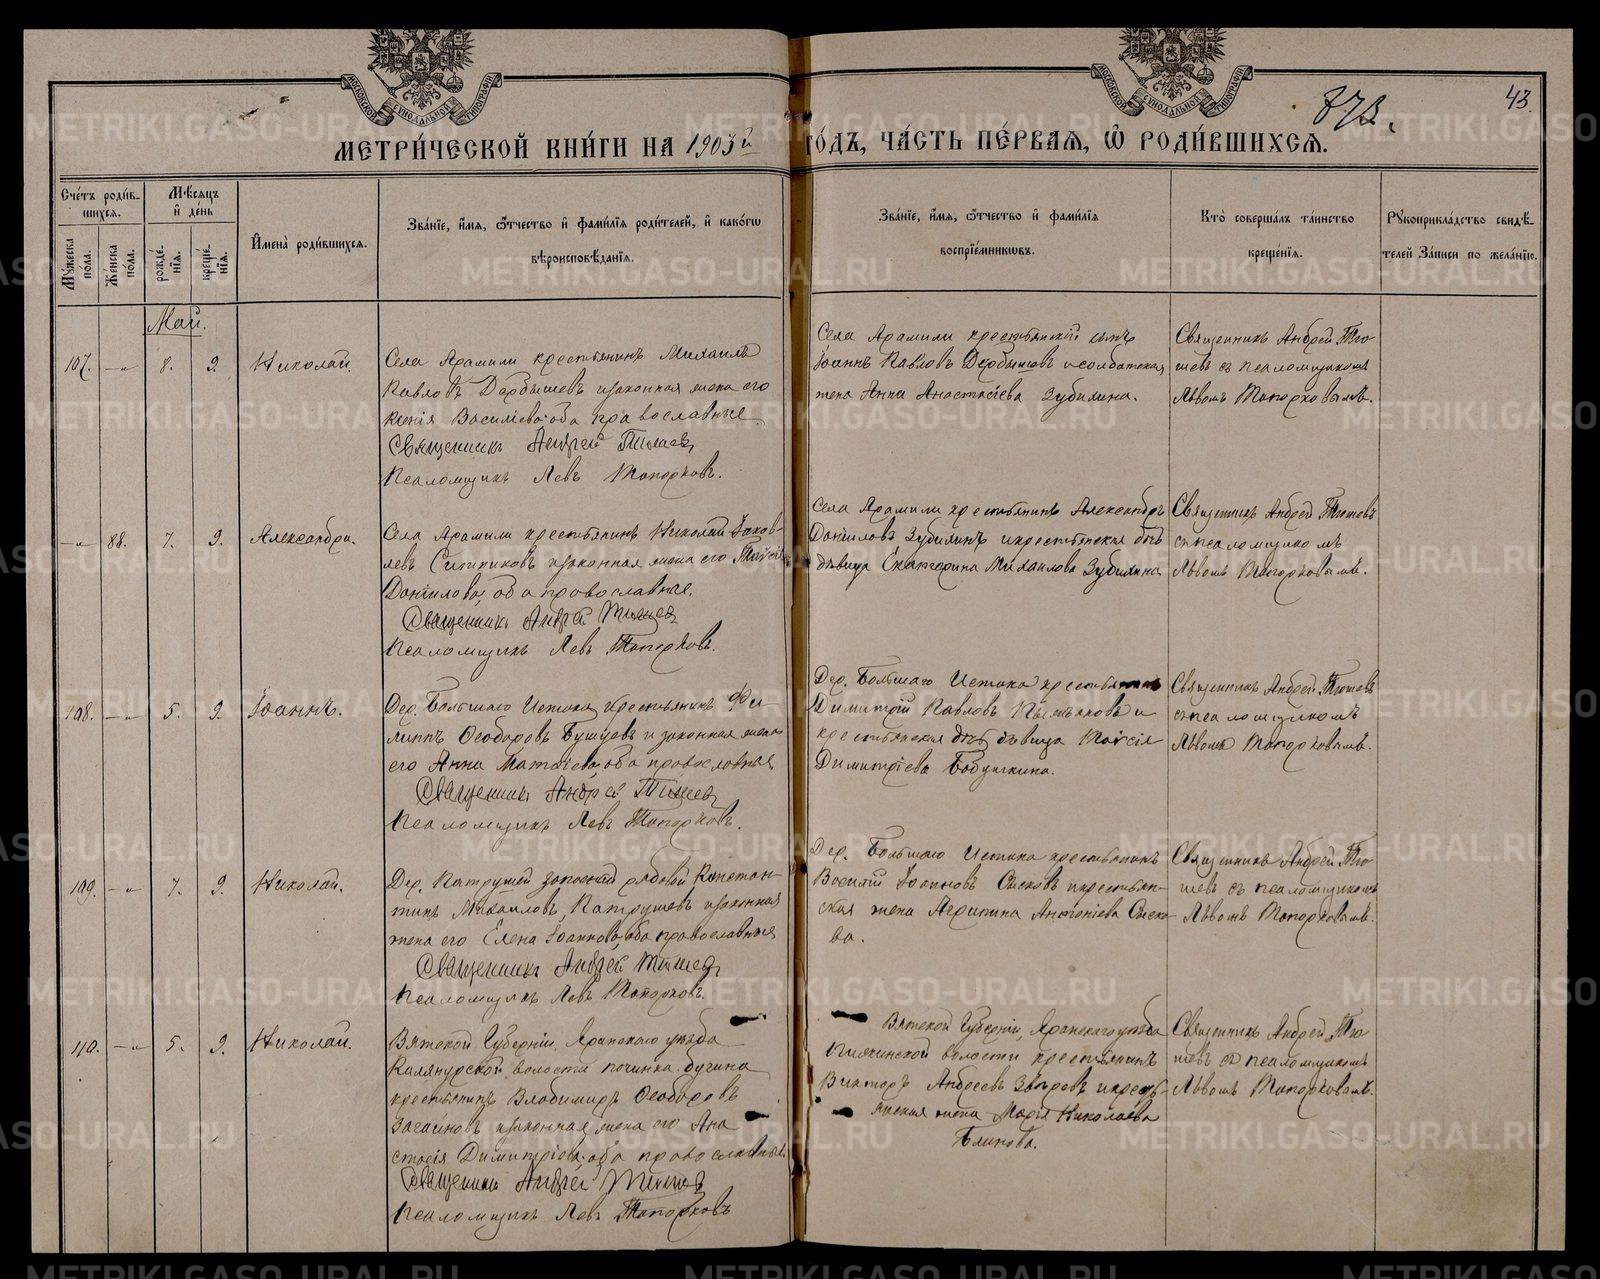 МОСКОВСКОЙ СУНОДАЛЬНОЙ ТИПОГРАФІИ
МОСКОВСКОЙ СУНОДАЛЬНОЙ ТИПОГРАФІИ
43
МЕТРИ́ЧЕСКОЙ КНИ́ГИ НА 1903й ГО́ДЪ, ЧА́СТЬ ПЕ́РВАЯ, Ѡ҆ РОДИ́ВШИХСЯ.
Сче́тъ роди́в-
шихся.
Мѣ́сяцъ
и҆ де́нь
Му́жеска по́ла.
Же́нска по́ла.
рожде́нїя.
креще́нїя.
И҆мена̀ роди́вшихся.
Зва́нїе, и҆́мя, ѻ҆́тчество и҆ фами́лїя роди́телей, и҆ како́гѡ
вѣроисповѣ́данїя.
Зва́нїе, и҆́мя, ѻ҆́тчество и҆ фами́лїя
воспрїе́мникѡвъ.
Кто̀ соверша́лъ та́инство
креще́нїя.
Рꙋкоприкла́дство свидѣ́-
телей За́писи по жела́нїю.
Май.
107. —„— 8. 9. Николай.
Села Арамили крестьянинъ Михаилъ
Павловъ Дербышевъ и законная жена его
Ксенія Васильева, оба православные
Священникъ Андрей Тюшев
Псаломщикъ Левъ Топорковъ.
Села Арамили крестьянскій сынъ
Іоаннъ Павловъ Дербышевъ и солдатская
жена Анна Анастасіева Зубилина.
Священникъ Андрей Тю-
шевъ съ псаломщикомъ
Львомъ Топорковымъ.
—„— 88. 7. 9. Александра.
Села Арамили крестьянинъ Николай Іаков-
левъ Ситниковъ и законная жена его Таисія
Даніилова, оба православные.
Священникъ Андрей Тюшев
Псаломщикъ Левъ Топорковъ.
Села Арамили крестьянинъ Александръ
Даниловъ Зубилинъ и крестьянская дочь
дѣвица Екатерина Михаилова Зубилина
Священникъ Андрей Тюшевъ
съ псаломщикомъ
Львомъ Топорковымъ.
108. —„— 5. 9. Іоаннъ.
Дер. Большаго Истока крестьянинъ Фи-
липпъ Ѳеодоровъ Бушуевъ и законная жена
его Анна Матѳіева, оба православные
Священникъ Андрей Тюшев
Псаломщикъ Левъ Топорковъ.
Дер. Большаго Истока крестьянинъ
Димитрій Павловъ и
крестьянская дочь дѣвица Таисія
Димитріева Бабушкина.
Священникъ Андрей Тюшевъ
съ псаломщикомъ
Львомъ Топорковымъ.
109. —„— 7. 9. Николай.
Дер. Патрушей запасный рядовой Констан-
тинъ Михаиловъ Патрушевъ и законная
жена его Елена Іоаннова, оба православные
Священникъ Андрей Тюшев
Псаломщикъ Левъ Топорковъ.
Дер. Большаго Истока крестьянинъ
Василій Іоанновъ Сысковъ и крестьян-
ская жена Агрипина Антоніева Сыско-
ва.
Священникъ Андрей Тю-
шевъ съ псаломщикомъ
Львомъ Топорковымъ.
110. —„— 5. 9. Николай.
Вятской Губерніи, Яранскаго уѣзда
волости починка
крестьянинъ Владимиръ Ѳеодоровъ
Загайновъ и законная жена его Ана-
стасія Димитріева, оба православные.
Священникъ Андрей Тюшев
Псаломщикъ Левъ Топорковъ
Вятской Губерніи, Яранскаго уѣзда
волости крестьянинъ
Викторъ Андреевъ Звѣревъ и кресть-
янская жена Марія Николаева
Блинова.
Священникъ Андрей Тю-
шевъ съ псаломщикомъ
Львомъ Топорковымъ.
METRIKI.GASO-URAL.RU